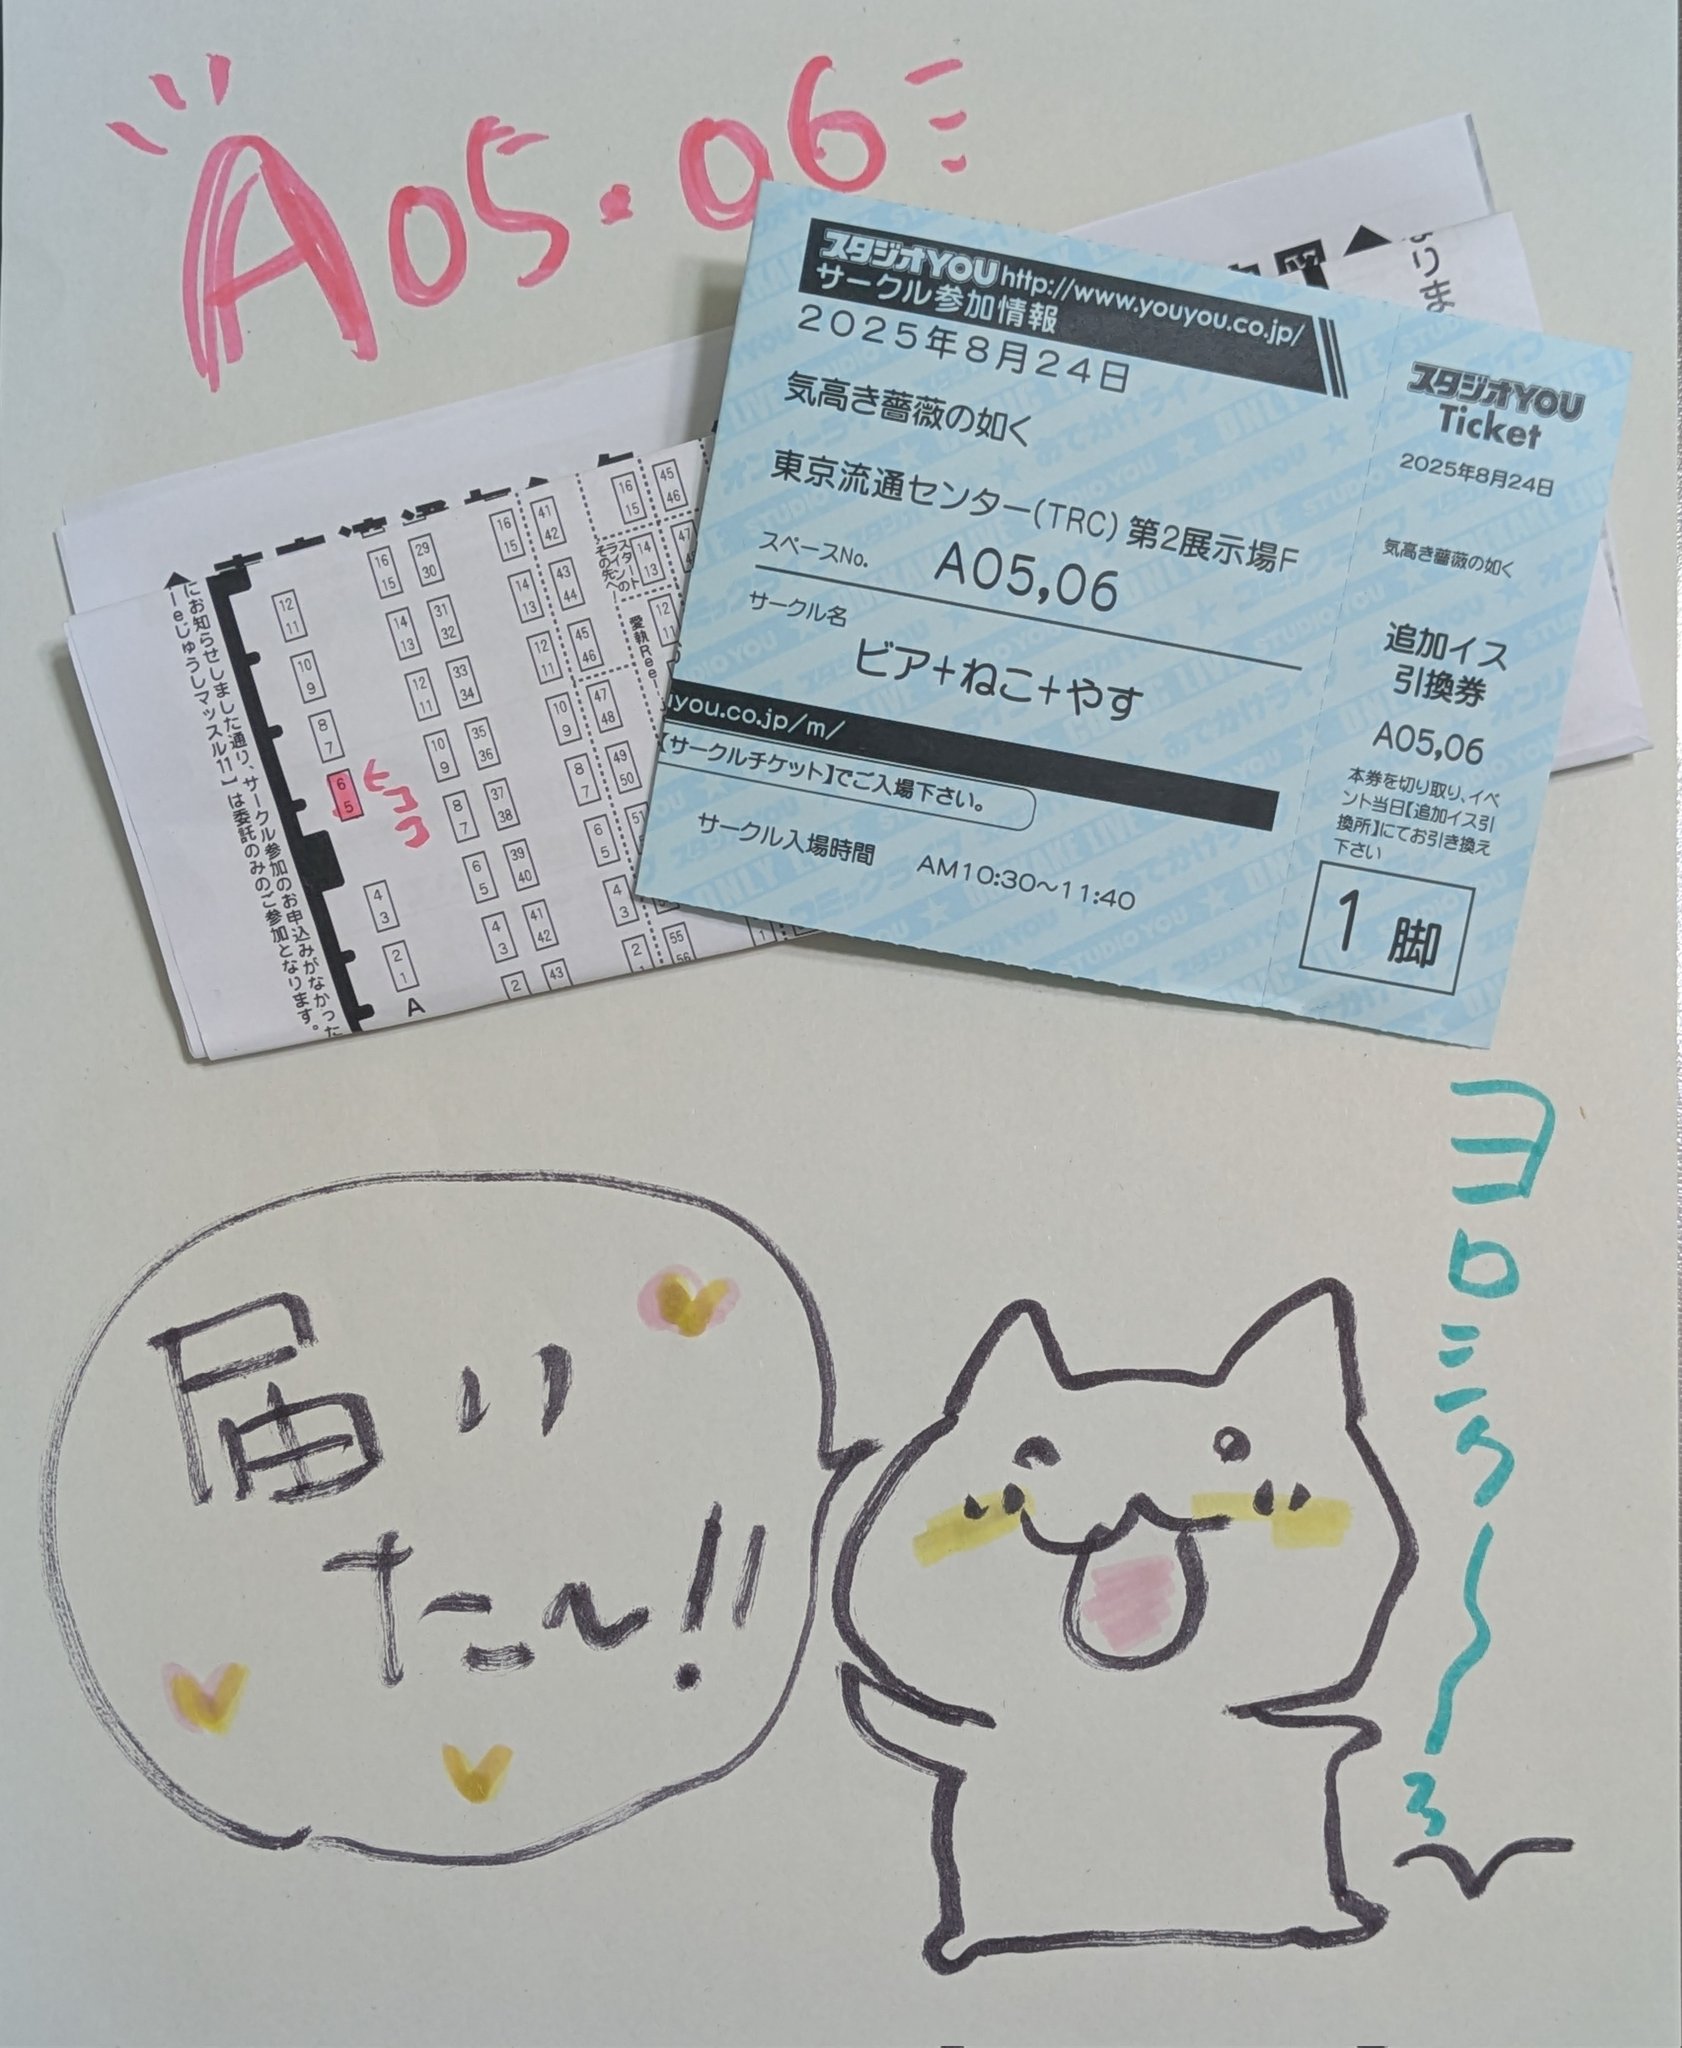 A05・06
スタジオYOU http://www.youyou.co.jp/
サークル参加情報
2025年8月24日
気高き薔薇の如く
東京流通センター(TRC) 第2展示場F
スペースNo. A05,06
サークル名
ビア+ねこ+やす
you.co.jp/m/
【サークルチケット】でご入場下さい。
サークル入場時間 AM10:30〜11:40
スタジオYOU
Ticket
2025年8月24日
気高き薔薇の如く
追加イス
引換券
A05,06
本券を切り取り、イベ
ント当日【追加イス引
換所】にてお引き換え
下さい
1 脚
にお知らせしました通り、サークル参加のお申込みがなかった
じゅうしマッスル11】は委託のみのご参加となります。
12
11
10
9
8
7
6
5
4
3
2
1
A
ココ
16
15
14
13
12
11
10
9
8
7
6
5
4
3
2
29
30
31
32
33
34
35
36
37
38
39
40
41
42
43
16
15
14
13
12
11
10
9
8
7
6
5
4
3
2
1
41
42
43
44
45
46
47
48
49
50
51
55
56
16
15
14
13
12
11
45
46
47
スタート
ラインの
その先へ
愛執Reel
届い
た〜!!
ヨロシク〜